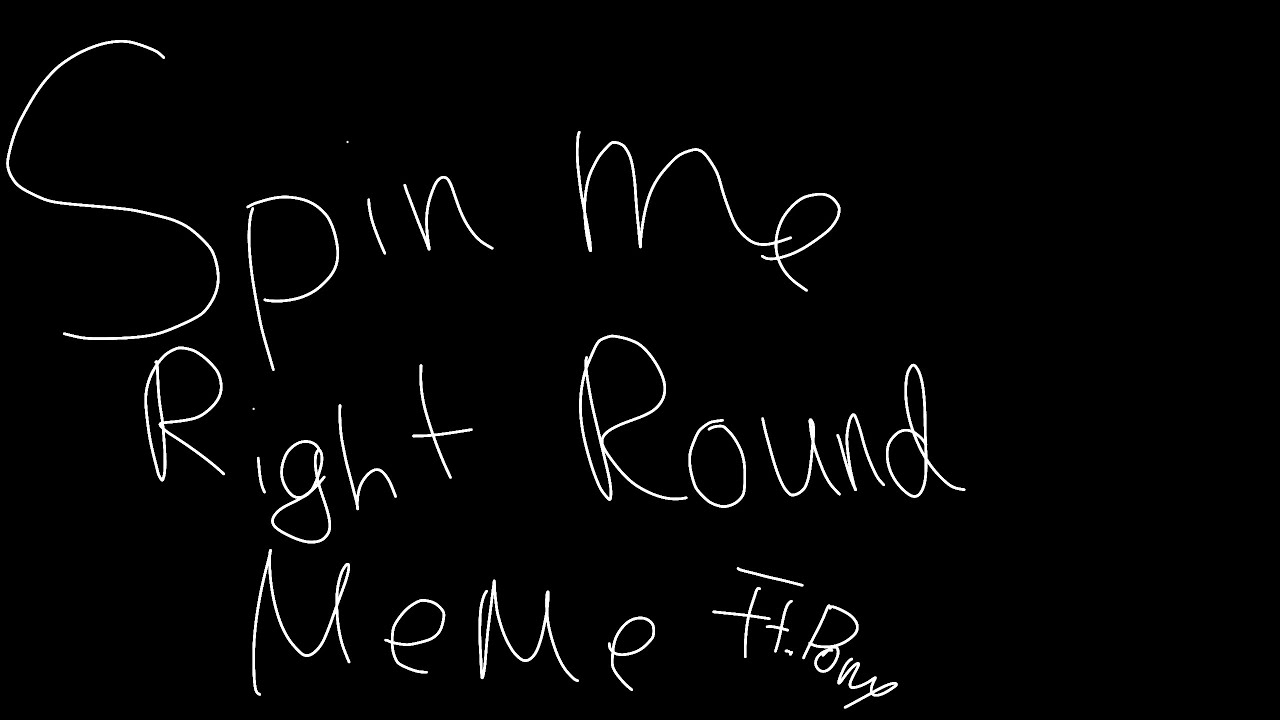 Spin Me
Right Round
MeMe Ft.